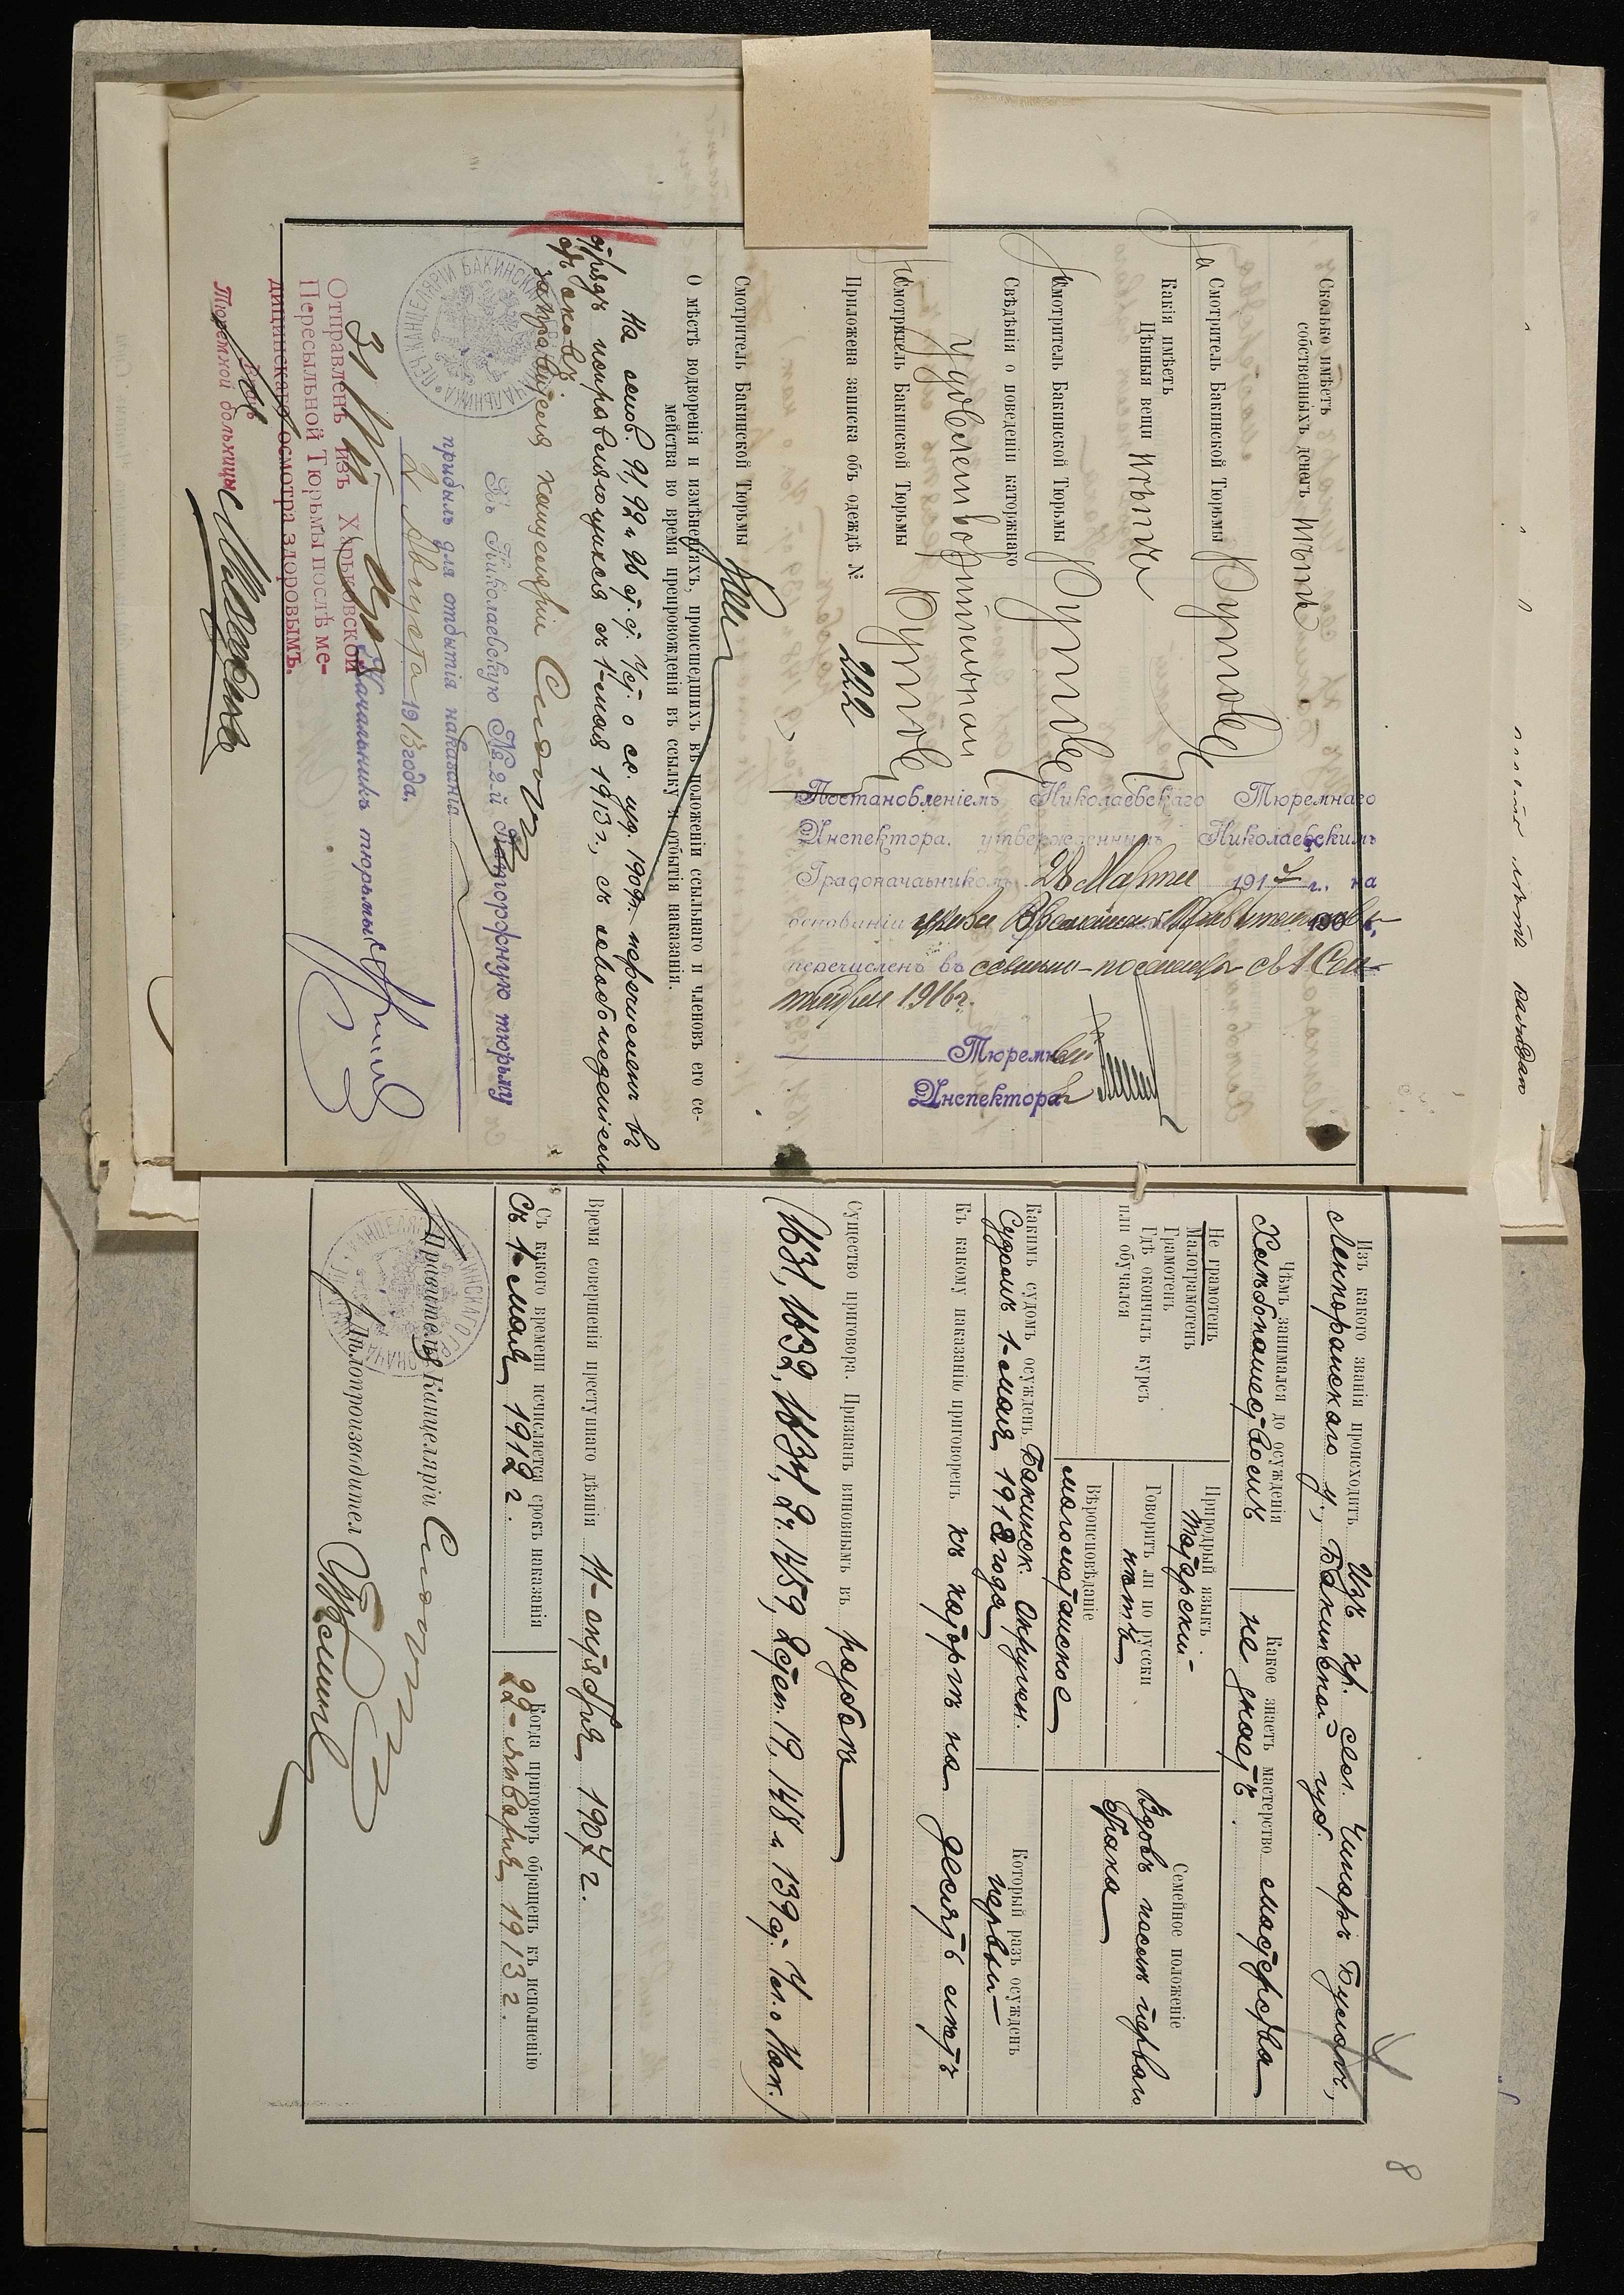 Сколько имѣетъ
собственныхъ денегъ Нѣтъ
Смотритель Бакинской Тюрьмы
Какія имѣетъ
Цѣнныя вещи Нѣтъ
Смотритель Бакинской Тюрьмы
Свѣдѣнія о поведеніи каторжнаго
Удовлетворительнаго
Смотритель Бакинской Тюрьмы
Приложена записка объ одеждѣ № 222
Смотритель Бакинской Тюрьмы
О мѣстѣ водворенія и измѣненіяхъ, происшедшихъ въ положеніи ссыльнаго и членовъ его се-
мейства во время препровожденія въ ссылку и отбытія наказанія.
На основ. 91, 92 и 96 ст. ст. Уст. о сс. изд. 1909 г. перечисленъ въ
отрядъ исправляющихся съ 1-мая 1913 г., съ освобожденіемъ
отъ оковъ
за правителя канцеляріи
Въ Николаевскую № 2-й Каторжную тюрьму
прибылъ для отбытія наказанія
2 Августа 1913 года.
Начальникъ тюрьмы
Отправленъ изъ Харьковской
Пересыльной Тюрьмы послѣ ме-
дицинскаго осмотра здоровымъ.
Врачъ
Тюремной больницы
Постановленіемъ Николаевскаго Тюремнаго
Инспектора, утвержденнымъ Николаевскимъ
Градоначальникомъ 28 Марта 1917 г., на
основаніи указа Временнаго Правительства
перечисленъ въ ссыльно-поселенцы съ 1 Сен-
тября 1916 г.
Тюремный
Инспекторъ
8
Изъ какого званія происходитъ Изъ кр. сел. Чинаръ Булагъ,
Ленкоранскаго у., Бакинской губ.
Чѣмъ занимался до осужденія
Хлѣбопашествомъ
Какое знаетъ мастерство мастерства
не знаетъ.
Не грамотенъ
Малограмотенъ
Грамотенъ
Гдѣ окончилъ курсъ
или обучался
Природный языкъ
татарскій
Говоритъ ли по русски
нѣтъ
Вѣроисповѣданіе
магометанское
Семейное положеніе
Вдовъ послѣ перваго
брака
Какимъ судомъ осужденъ Бакинск. Окружн.
Судомъ 1-мая 1912 года
Который разъ осужденъ
первый
Къ какому наказанію приговоренъ къ каторгѣ на десять лѣтъ
Существо приговора. Признанъ виновнымъ въ разбоѣ
(1631, 1632, 1634, 2 ч. 1459, 2 степ. 19, 148 и 139 ст. Ул. о Нак.)
Время совершенія преступнаго дѣянія 11-октября 1907 г.
Съ какого времени исчисляется срокъ наказанія
съ 1-мая 1912 г.
Когда приговоръ обращенъ къ исполненію
22-января 1913 г.
Правитель Канцеляріи
Дѣлопроизводител